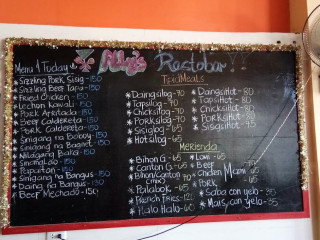 Menu 4 Today
Ally's Restobar!!
* Sizzling Pork Sisig - 150
* Sizzling Beef Tapa - 150
* Fried Chicken - 150
* Lechon Kawali - 150
* Pork Aretada - 150
* Beef Caldereta - 150
* Pork Caldereta - 150
* Sinigang na Baboy - 150
* Sinigang na Bagnet - 150
* Nilagang Baka - 150
* Sinanglao - 150
* Papaitan - 150
* Sinigang na Bangus - 150
* Daing na Bangus - 150
* Beef Mechado - 150
TsidMeals
* Daingsilog - 70
* Tapsilog - 70
* Chicksilog - 70
* Porksilog - 70
* Sisiglog - 65
* Hotsilog - 65
* DaingsHot - 80
* TapsiHot - 80
* ChicksiHot - 80
* PorksiHot - 80
* SisgsiHot - 75
Merienda
* Bihon G - 65
* Canton G - 65
* Bihon/Canton (mix) - 70
* Palabok - 65
* French Fries - 120
* Halo Halo - 60
* Lomi - 65
* Beef
* Chicken Mami
* Pork - 65
* Saba con yelo - 35
* Mais con yelo - 35